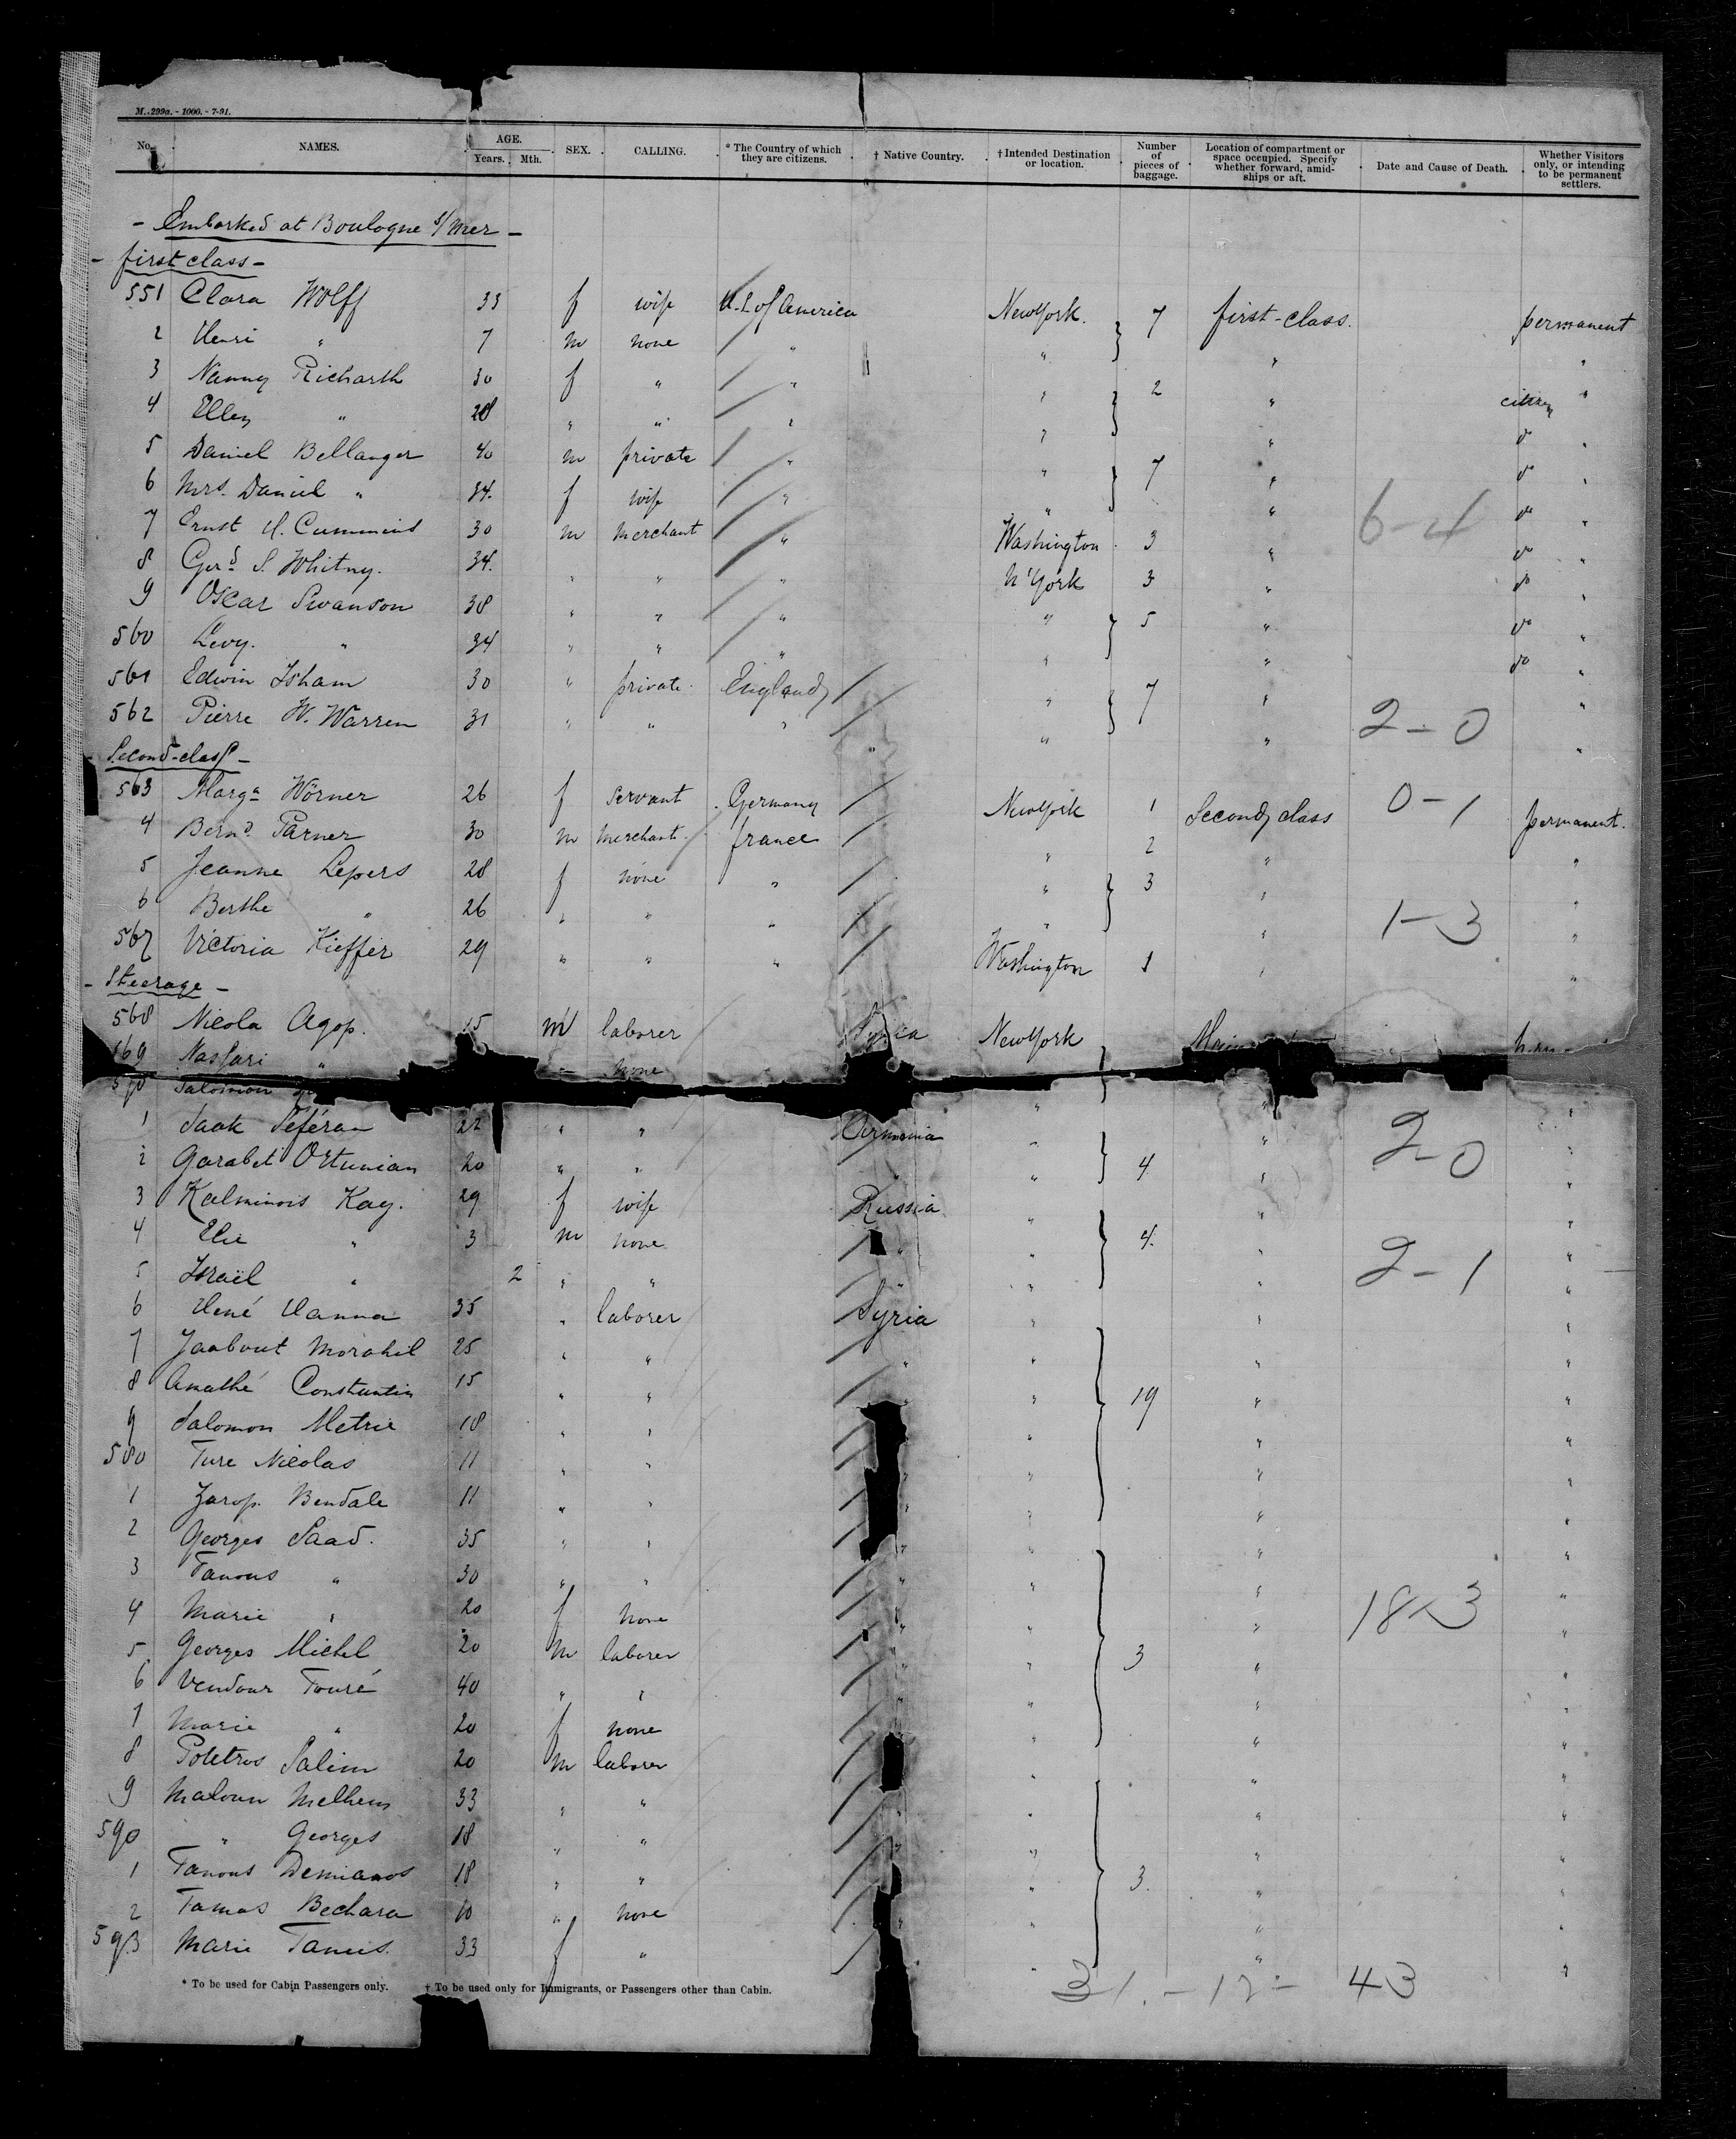 M. 299a. - 1000. - 7-91.
No. NAMES. AGE. Years. Mth. SEX. CALLING. * The Country of which they are citizens. † Native Country. † Intended Destination or location. Number of pieces of baggage. Location of compartment or space occupied. Specify whether forward, amidships or aft. Date and Cause of Death. Whether Visitors only, or intending to be permanent settlers.
- Embarked at Boulogne s/mer -
- first class -
551 Clara Wolff 33 f wife U.S. of America New York. 7 first-class. permanent
2 Henri " 7 m none " " " "
3 Nanny Richarth 30 f " " " 2 " "
4 Ellen " 28 " " " " " citizen
5 Daniel Bellanger 40 m private " " 7 " do "
6 Mrs. Daniel " 34. f wife " " " do "
7 Ernst H. Cummins 30 m merchant " Washington 3 " 6-4 do "
8 Gerd S. Whitny. 34. " " " N'York 3 " do "
9 Oscar Swanson 38 " " " " 5 " do "
560 Levy. " 34 " " " " " do "
561 Edwin Isham 30 " private England " 7 " do "
562 Pierre W. Warren 31 " " " " " 2-0 "
- Second-class -
563 Marga Wörner 26 f servant Germany New York 1 Second class 0-1 permanent.
4 Bernd Parner 30 m merchant france " 2 " "
5 Jeanne Lepers 28 f none " " 3 " "
6 Berthe " 26 " " " " " 1-3 "
567 Victoria Kieffer 29 " " " Washington 1 " "
- Steerage -
568 Nicola Agop. 15 m laborer Syria New York
569 Nassari " none
570 Salomon
1 Saak Séféran 22 " " Armenia " " 2-0 "
2 Garabet Ortunian 20 " " " " 4 " "
3 Kalminois Kay. 29 f wife Russia " " "
4 Elie " 3 m none " " 4. " 2-1 "
5 Israël " 2 " " " " " "
6 Hené Hanna 35 " laborer Syria " " "
7 Jaabout Morahil 25 " " " " " "
8 Anathé Constantin 15 " " " " 19 " "
9 Salomon Metrie 18 " " " " "
580 Ture Nicolas 11 " " " " " "
1 Zarop. Bendale 11 " " " " " "
2 Georges Saad. 35 " " " " " "
3 Tanous " 30 " " " " " "
4 Marie " 20 f none " " " 18-3 "
5 Georges Michel 20 m laborer " " 3 " "
6 Vendour Touré 40 " " " " " "
7 Marie " 20 f none " " "
8 Poletros Salim 20 m laborer " " "
9 Maloun Melhem 33 " " " " " "
590 " Georges 18 " " " " " "
1 Tanous Demianos 18 " " " 3. " "
2 Tamas Bechara 10 " none " " " "
593 Marie Tanus. 33 f " " " "
* To be used for Cabin Passengers only. † To be used only for Immigrants, or Passengers other than Cabin.
31.-12- 43